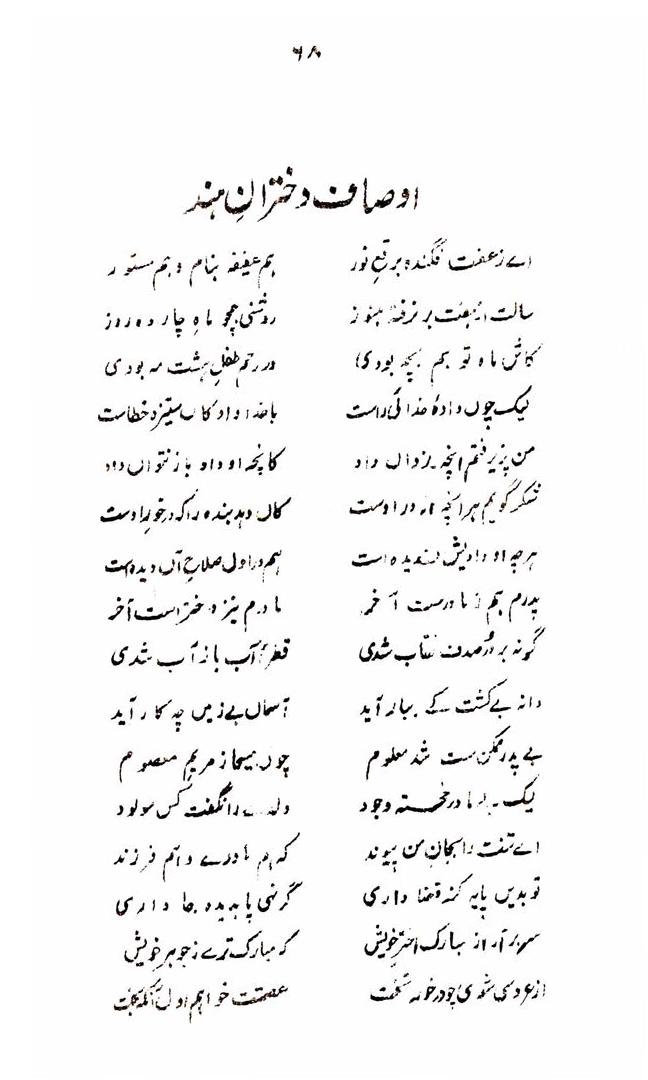 ۶۸
اوصاف دختران ہند
اے ز عفت فگندہ برقع نور ہم عفیفہ بنام و ہم مستور
سالت از ہفت بر نرفتہ ہنوز روشنی ہمچو ماہ چاردہ روز
کاش ماہ تو ہم بچہ بودی در رحم طفل ہشت مہ بودی
لیک چوں دادۂ خدائی راست با خدا دادگاں ستیزہ خطاست
من پزیرفتم انچہ یزداں داد کانچہ او داد باز نتواں داد
شکر گویم ہر انچہ از در اوست کاں دہد بندہ را کہ درخور اوست
ہرچہ او دادیش پسندیدہ است ہم در اول صلاح آں دیدہ است
پدرم ہم ز مادرست آخر مادرم نیز دختر است آخر
گو نہ بر در صدف نقاب شدی قطرۂ آب باز آب شدی
دانہ بے کشت کے ببار آید آسماں بے زمیں چہ کار آید
بے پدر ممکن ست شد معلوم چوں مسیحا ز مریم معصوم
لیک بے مادر خجستہ وجود ولدے را نگفت کس مولود
اے تنت را بجان من پیوند کہ ہم مادرے و ہم فرزند
تو بدیں پایہ کز قضا داری گر نہی پا بدیدہ جا داری
سر برآر از مبارک اختر خویش کہ مبارک ترے ز جوہر خویش
از عروسی شوی چو در خور تخت عصمت خواہم اول آنگہ بخت